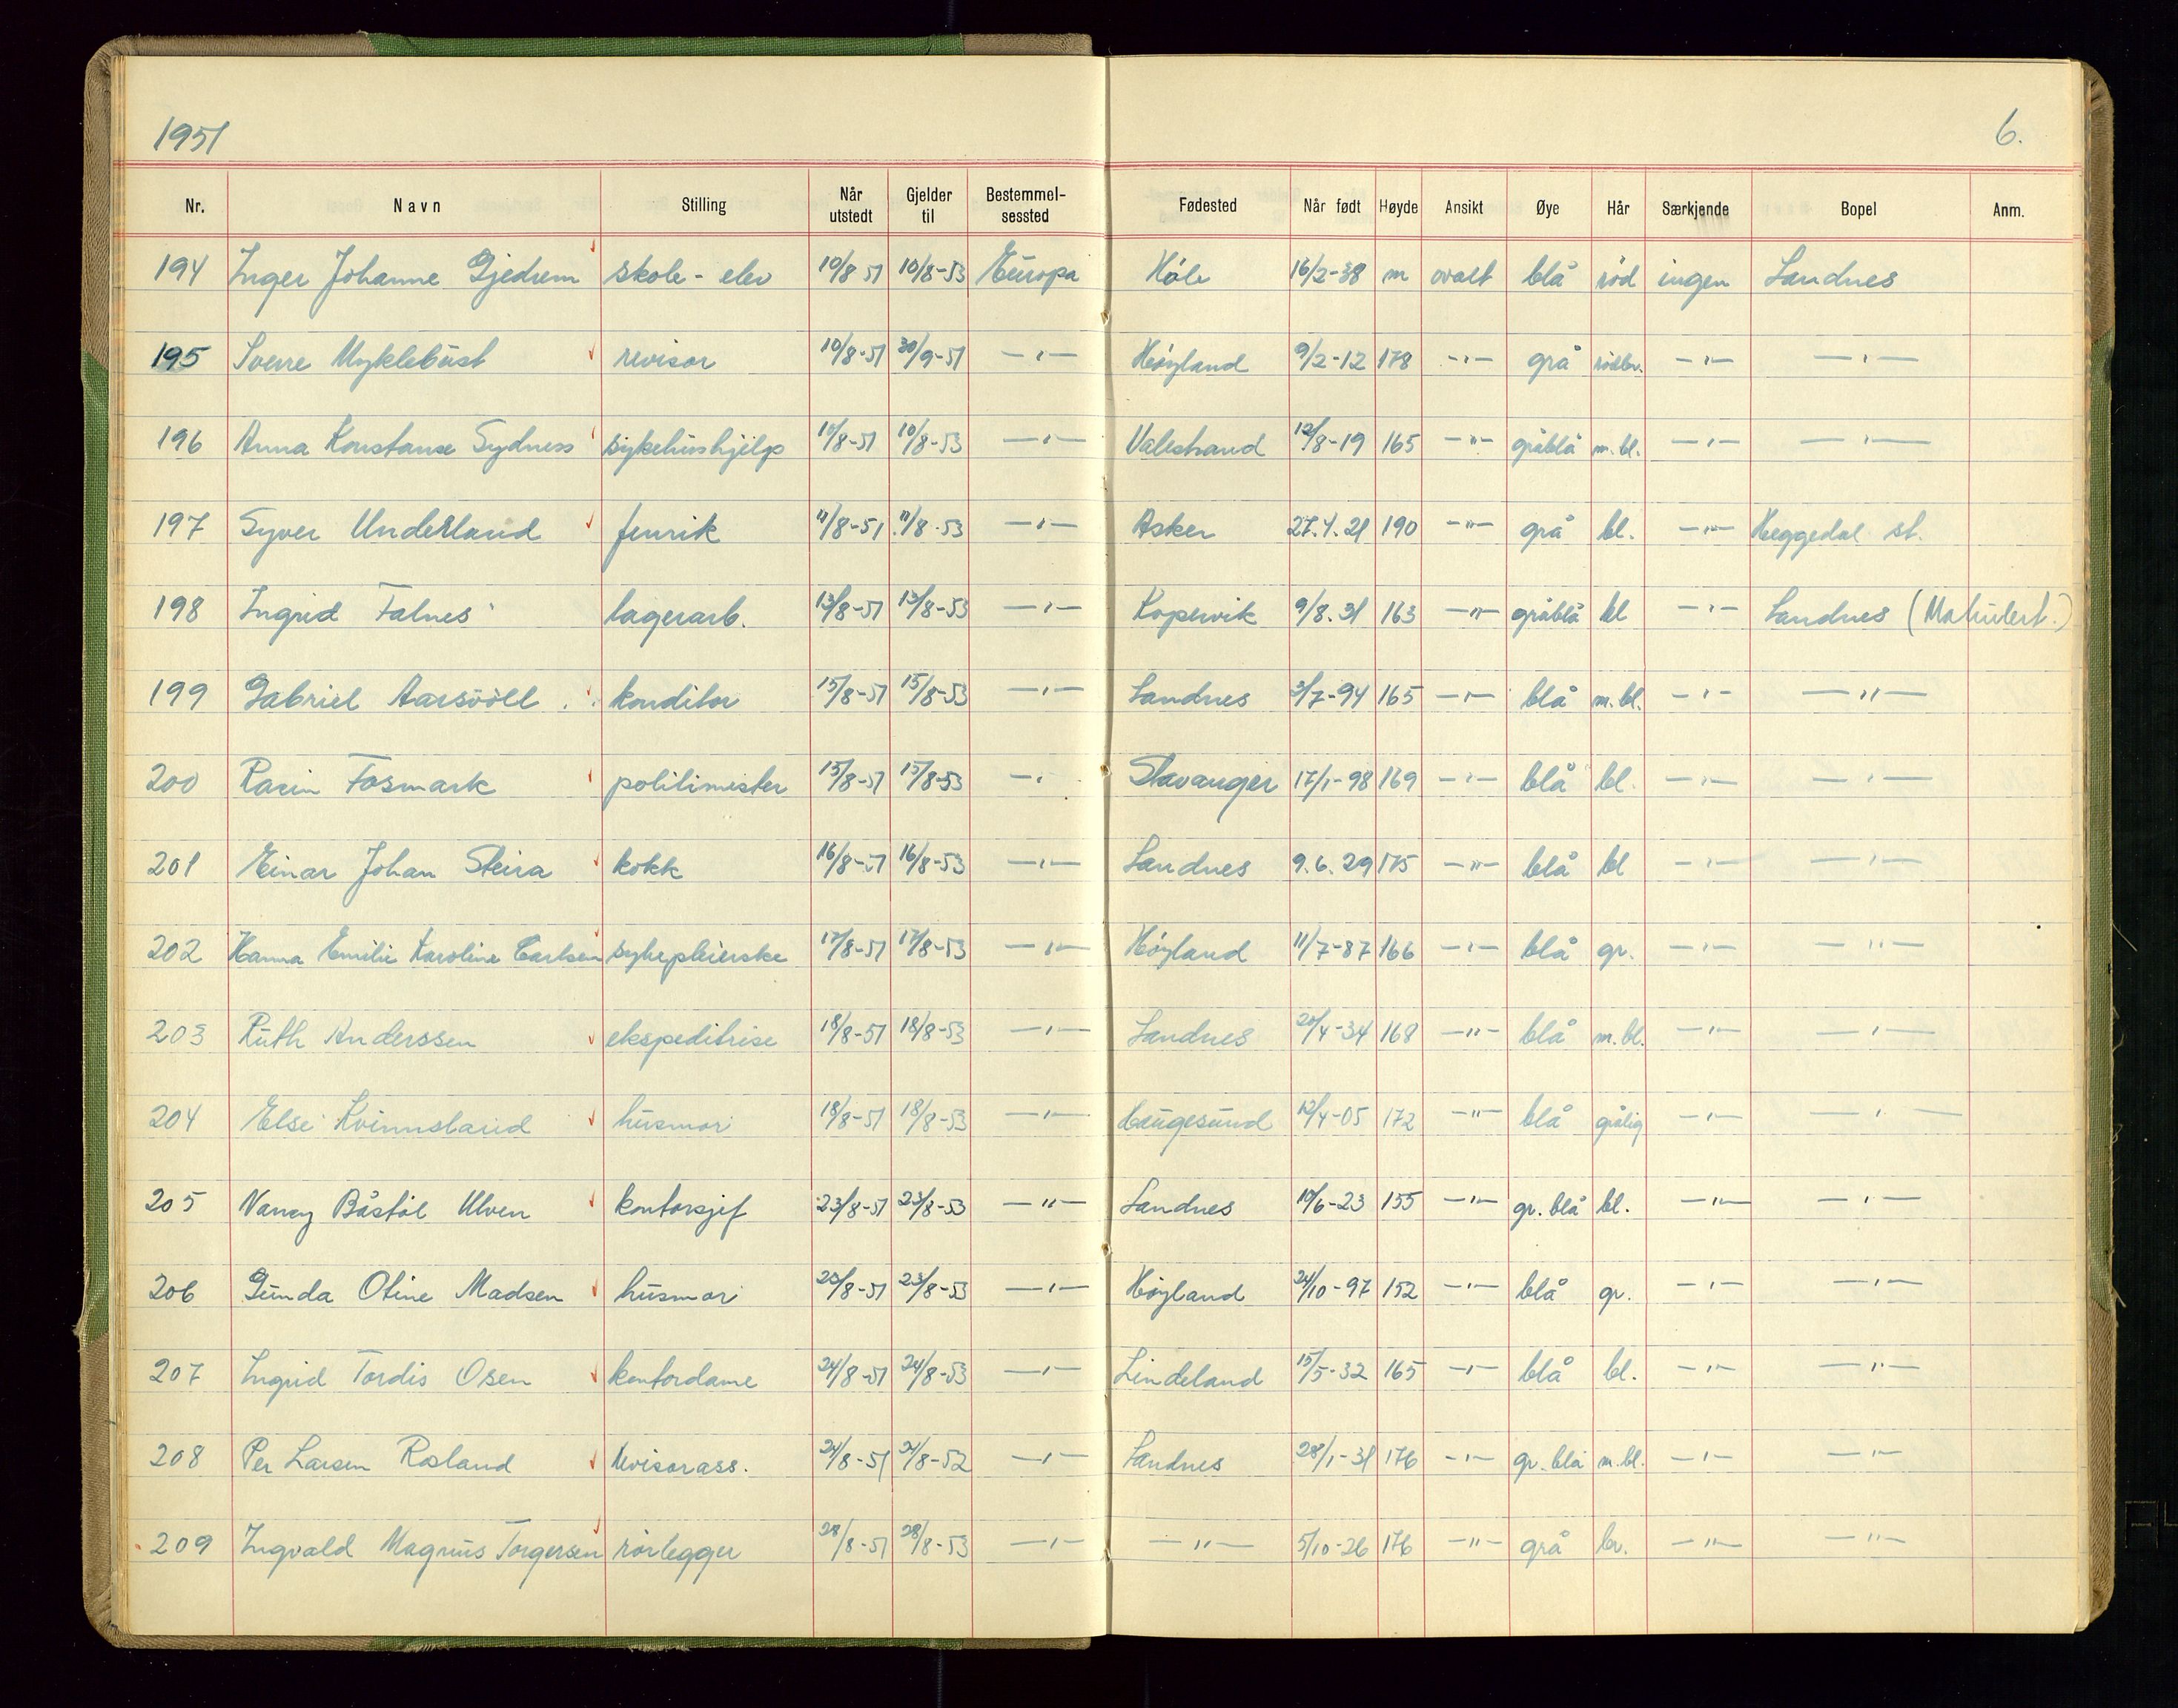 1951 6.
Nr. Navn Stilling Når utstedt Gjelder til Bestemmel-sessted Fødested Når født Høyde Ansikt Øye Hår Særkjende Bopel Anm.
194 Inger Johanne Gjedrem skole-elev 10/8-51 10/8-53 Europa Høle 16/2-38 m ovalt blå rød ingen Sandnes
195 Sverre Myklebust revisor 10/8-51 30/9-51 —"— Høyland 9/2-12 178 —"— grå rødbr. —"— —"—
196 Anna Konstanse Sydness sykehushjelp 10/8-51 10/8-53 —"— Valestrand 12/8-19 165 —"— gråblå m.bl. —"— —"—
197 Syver Underland fenrik 11/8-51 11/8-53 —"— Asker 27.4.21 190 —"— grå bl. —"— Heggedal st.
198 Ingrid Falnes lagerarb. 13/8-51 13/8-53 —"— Kopervik 9/8.31 163 —"— gråblå bl —"— Sandnes
199 Gabriel Aarsvoll konditor 15/8-51 15/8-53 —"— Sandnes 3/7-94 165 —"— blå m.bl. —"— —"—
200 Fosmark politimester 15/8-51 15/8-53 —"— Stavanger 17/1-98 169 —"— blå bl. —"— —"—
201 Einar Johan Steira kokk 16/8-51 16/8-53 —"— Sandnes 9.6.29 175 —"— blå bl —"— —"—
202 Hanna Emilie Karoline Carlsen sykepleierske 17/8-51 17/8-53 —"— Høyland 11/7-87 166 —"— blå gr. —"— —"—
203 Ruth Anderssen ekspeditrise 18/8-51 18/8-53 —"— Sandnes 20/4-34 168 —"— blå m.bl. —"— —"—
204 Else Kvinnsland husmor 18/8-51 18/8-53 —"— Haugesund 12/4-05 172 —"— blå grålig —"— —"—
205 Nancy Båstøl Ulven kontorsjef 23/8-51 23/8-53 —"— Sandnes 19/6-23 155 —"— gr.blå bl. —"— —"—
206 Gunda Otine Madsen husmor 23/8-51 23/8-53 —"— Høyland 24/10-97 152 —"— blå gr. —"— —"—
207 Ingrid Tordis Osen kontordame 24/8-51 24/8-53 —"— Lindeland 15/5-32 165 —"— blå bl. —"— —"—
208 Per Larsen Rosland revisorass. 24/8-51 24/8-52 —"— Sandnes 28/1-31 176 —"— gr.blå m.bl. —"— —"—
209 Ingvald Magnus Torgersen rørlegger 28/8-51 28/8-53 —"— —"— 5/10-26 176 —"— grå br. —"— —"—